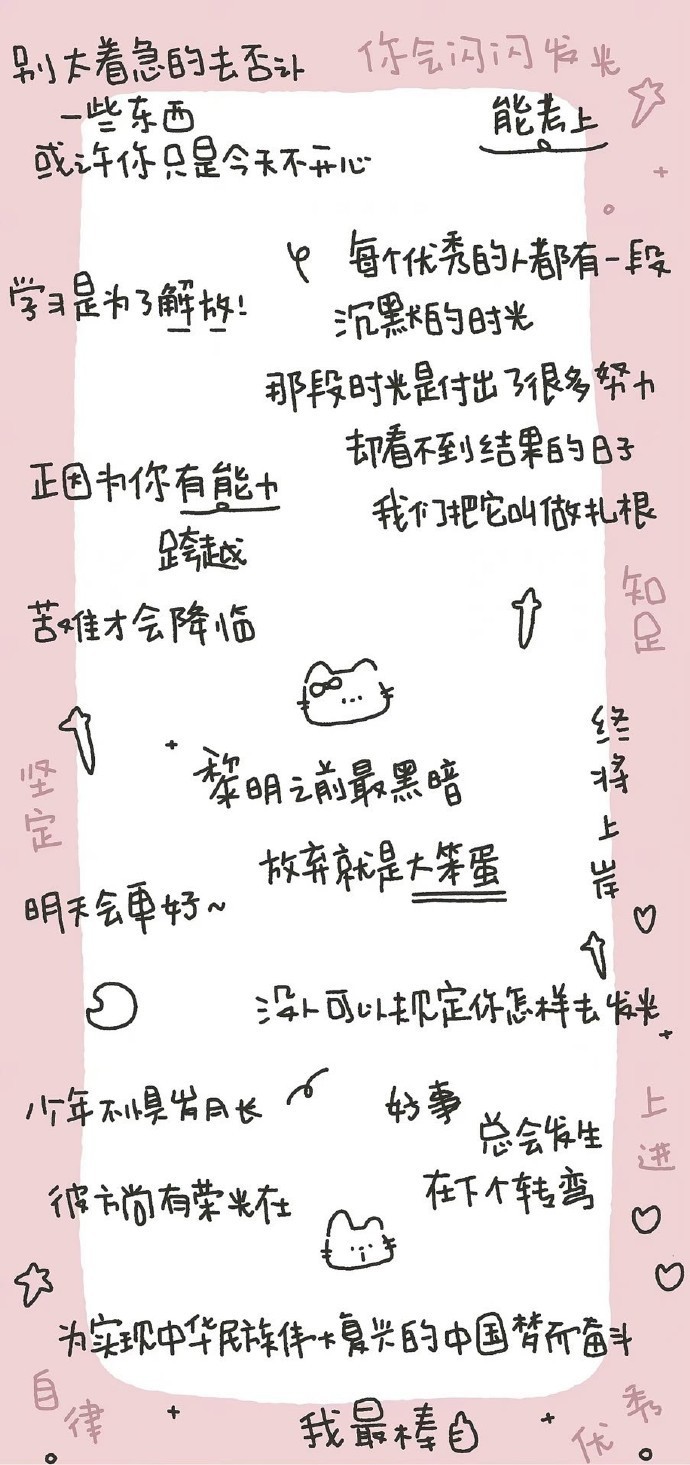 别太着急的去否认
你会闪闪发光
一些东西
能考上
或许你只是今天不开心
每个优秀的人都有一段
学习是为了解放!
沉默的时光
那段时光是付出了很多努力
却看不到结果的日子
正因为你有能力
我们把它叫做扎根
跨越
苦难才会降临
知足
终将上岸
坚定
黎明之前最黑暗
放弃就是大笨蛋
明天会更好~
没人可以规定你怎样去发光
少年不惧岁月长
好事
总会发生
上进
彼方尚有荣光在
在下个转弯
为实现中华民族伟大复兴的中国梦而奋斗
自律
我最棒
优秀